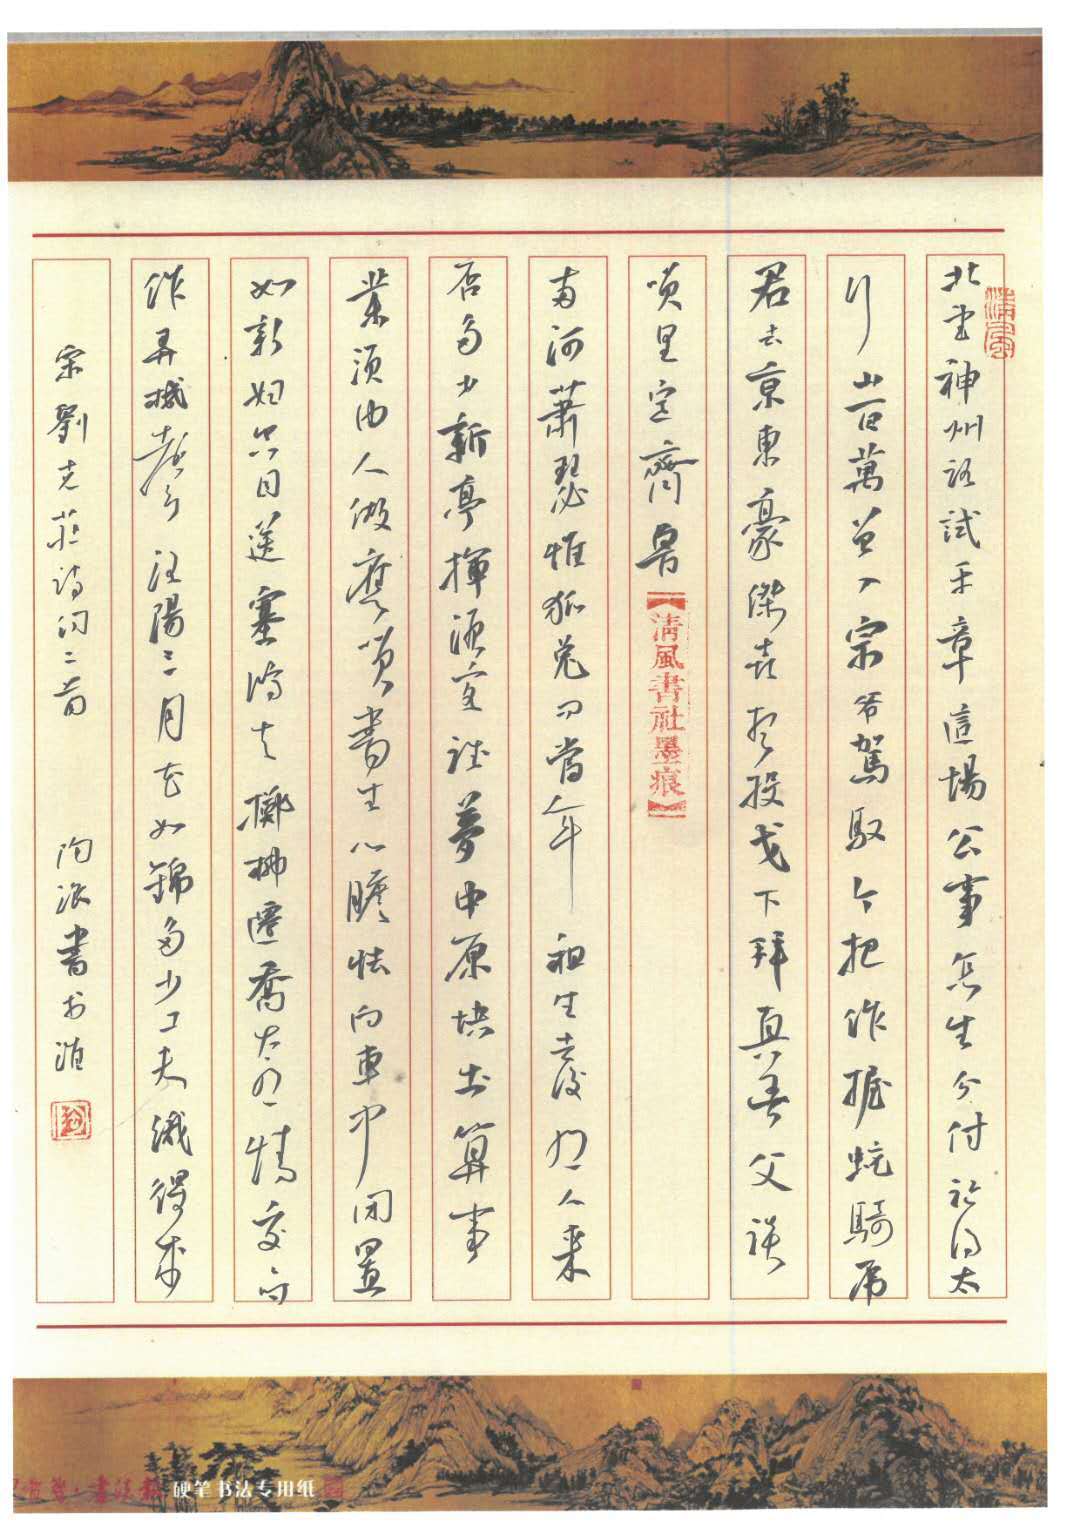 清風
北望神州路試平章這場公事怎生分付記得太
行山百萬曾入宗爺駕馭今把作握蛇騎虎
君去京東豪傑喜想投戈下拜真吾父談
笑里定齊魯
【清風書社墨痕】
兩河蕭瑟惟狐兔問當年祖生去後有人來
否多少新亭揮淚客誰夢中原塊土算事
業須由人做應笑書生心膽怯向車中閉置
如新婦空目送塞鴻去擲柳遷喬太有情交交时
作弄機聲洛陽三月花如錦多少工夫織得成
宋劉克莊詩詞二首 書於
书法报
硬笔书法专用纸